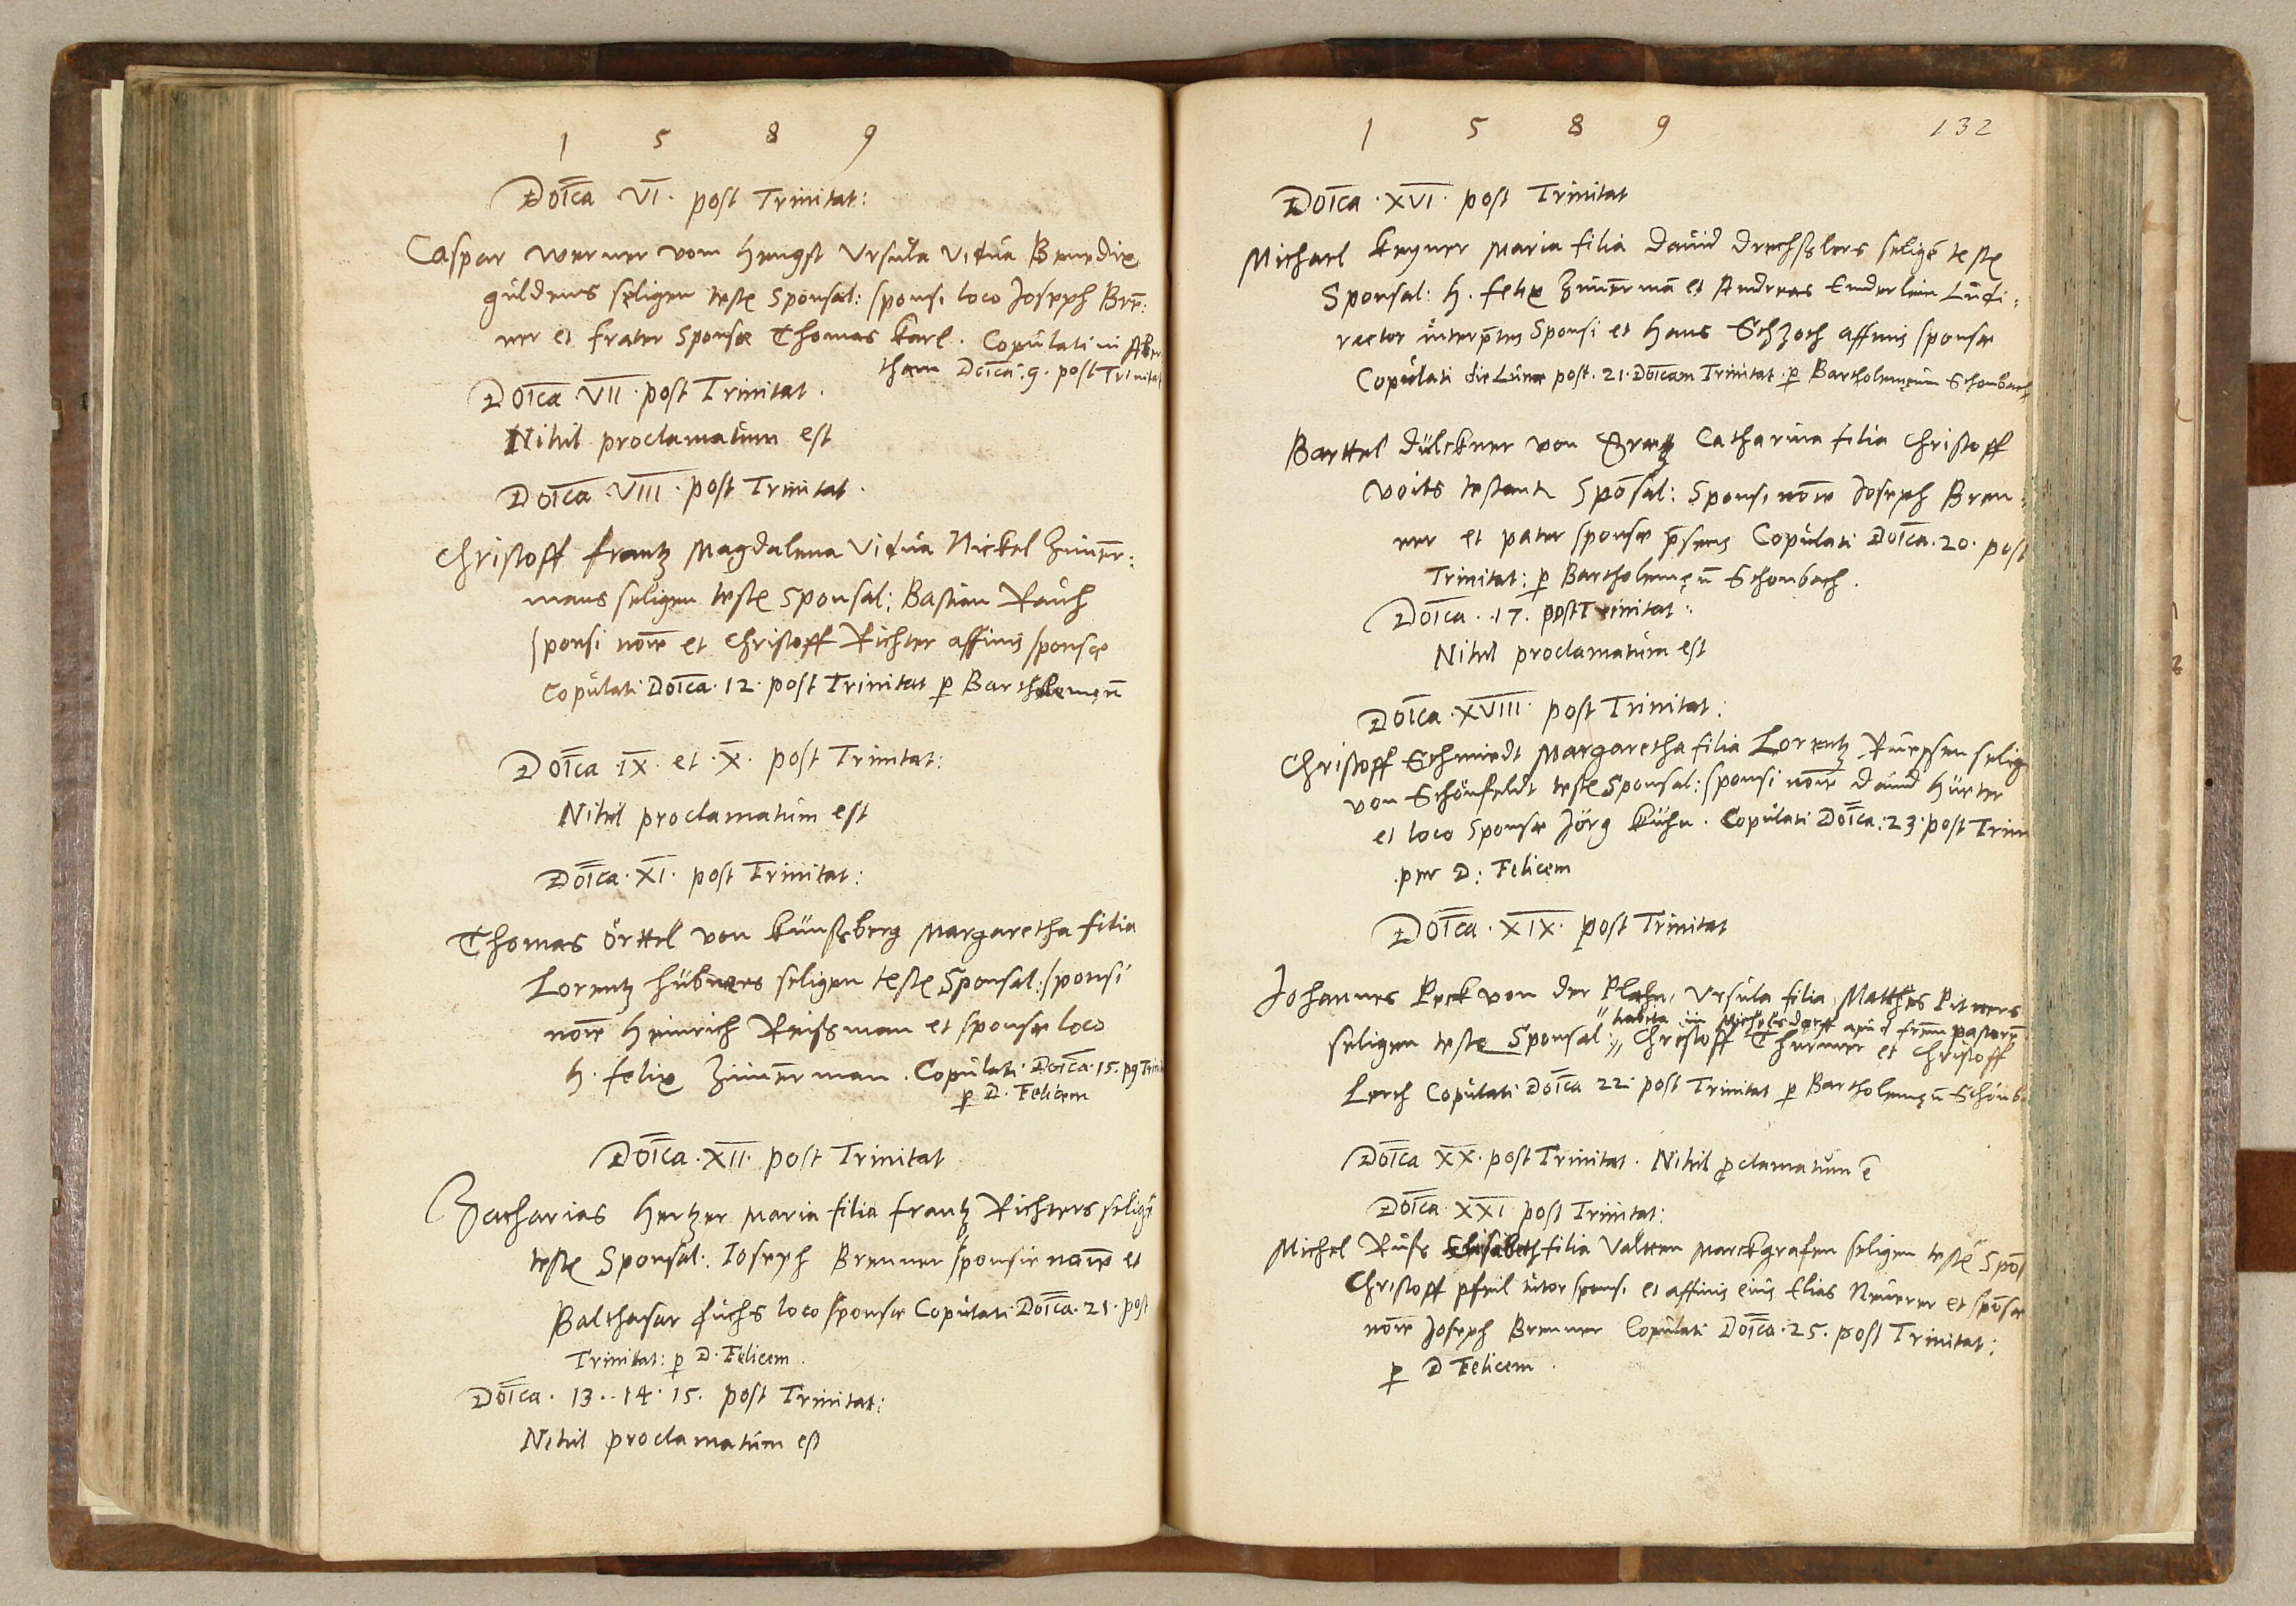 1 5 8 9
Doi̅ca VI. post Trinitat:
Caspar Werner vom Hengst Ursula Vidua Benedix
güldens seligen teste Sponsal: sponsi loco Joseph Bre̅:
ner et frater sponsæ Thomas Karl. Copulati in Aber
tham Doi̅ca: 9. post Trinitat
Doi̅ca VII post Trinitat.
Nihil proclamatum est
Doi̅ca VIII post Trinitat.
Christoff Frantz Magdalena Vidua Nickel Zim̅er:
mans seligen teste Sponsal: Bastian Rauh
sponsi no̅ie et Christoff Richter affinis sponsæ
Copulati Doi̅ca 12. post Trinitat p Bartholemęu̅
Doi̅ca IX. et X. post Trinitat:
Nihil proclamatum est
Doi̅ca XI. post Trinitat:
Thomas örttel von Künssberg Margaretha filia
Lorentz Hübners seligen teste Sponsal: sponsi
no̅ie Heinrich Reissman et sponsæ loco
H. Felix Zim̅erman. Copulati Doi̅ca 15. p9 Trinit
p D. Felicem
Doi̅ca XII. post Trinitat
Zacharias Hertzer Maria filia Frantz Richters selige̅
teste Sponsal: Joseph Brenner sponsi no̅ie et
Balthasar Fuchs loco sponsæ Copulati Doi̅ca 21. post
Trinitat: p D. Felicem.
Doi̅ca. 13. 14. 15. post Trinitat:
Nihil proclamatum est
1 5 8 9 132
Doi̅ca. XVI. post Trinitat
Michael Keyner Maria filia David Drechsslers selige̅ teste
Sponsal: H. Felix Zim̅erma̅ et Andreas Enderlein Ludi:
rector interp̅tes Sponsi et Hans Schzoch affinis sponsæ
Copulati die Lunæ post. 21. Doi̅cam Trinitat. p Bartholemęum Schonbach
Barttel Dülckner von Catharina filia Christoff
Voits testante Spo̅sal: Sponsi no̅ie Joseph Bren:
ner et pater sponsæ p̅sens Copulati Doi̅ca. 20. post
Trinitat: p Bartholemęu̅ Schonbach.
Doi̅ca. 17. post Trinitat:
Nihil proclamatum est
Doi̅ca XVIII. post Trinitat:
Christoff Schmiedt Margaretha filia Lorentz selig
von Schönfeldt teste Sponsal: sponsi no̅ie David Hürter
et loco sponsæ Jörg Kühn. Copulati Doi̅ca: 23. post Trini
per D: Felicem
Doi̅ca. XIX. post Trinitat
Johannes Peck von der Plahn, Ursula filia Matthes Pitners
habita in Michelsdorff apud frem̅ pastore̅
seligen teste Sponsal: Christoff Thurner et Christoff
Lerch Copulati Doi̅ca 22. post Trinitat p Bartholemęu̅ Schönb
Doi̅ca XX. post Trinitat. Nihil pclamatum e̅
Doi̅ca XXI post Trinitat:
Michel Russ Elisabeth filia Valtten Marckgrafen seligen teste Spo̅s
Christoff Pfeil tutor sponsi et affinis eius Elias Neuerer et spo̅sæ
no̅ie Joseph Brenner Copulati Doi̅ca. 25. post Trinitat:
p D Felicem.